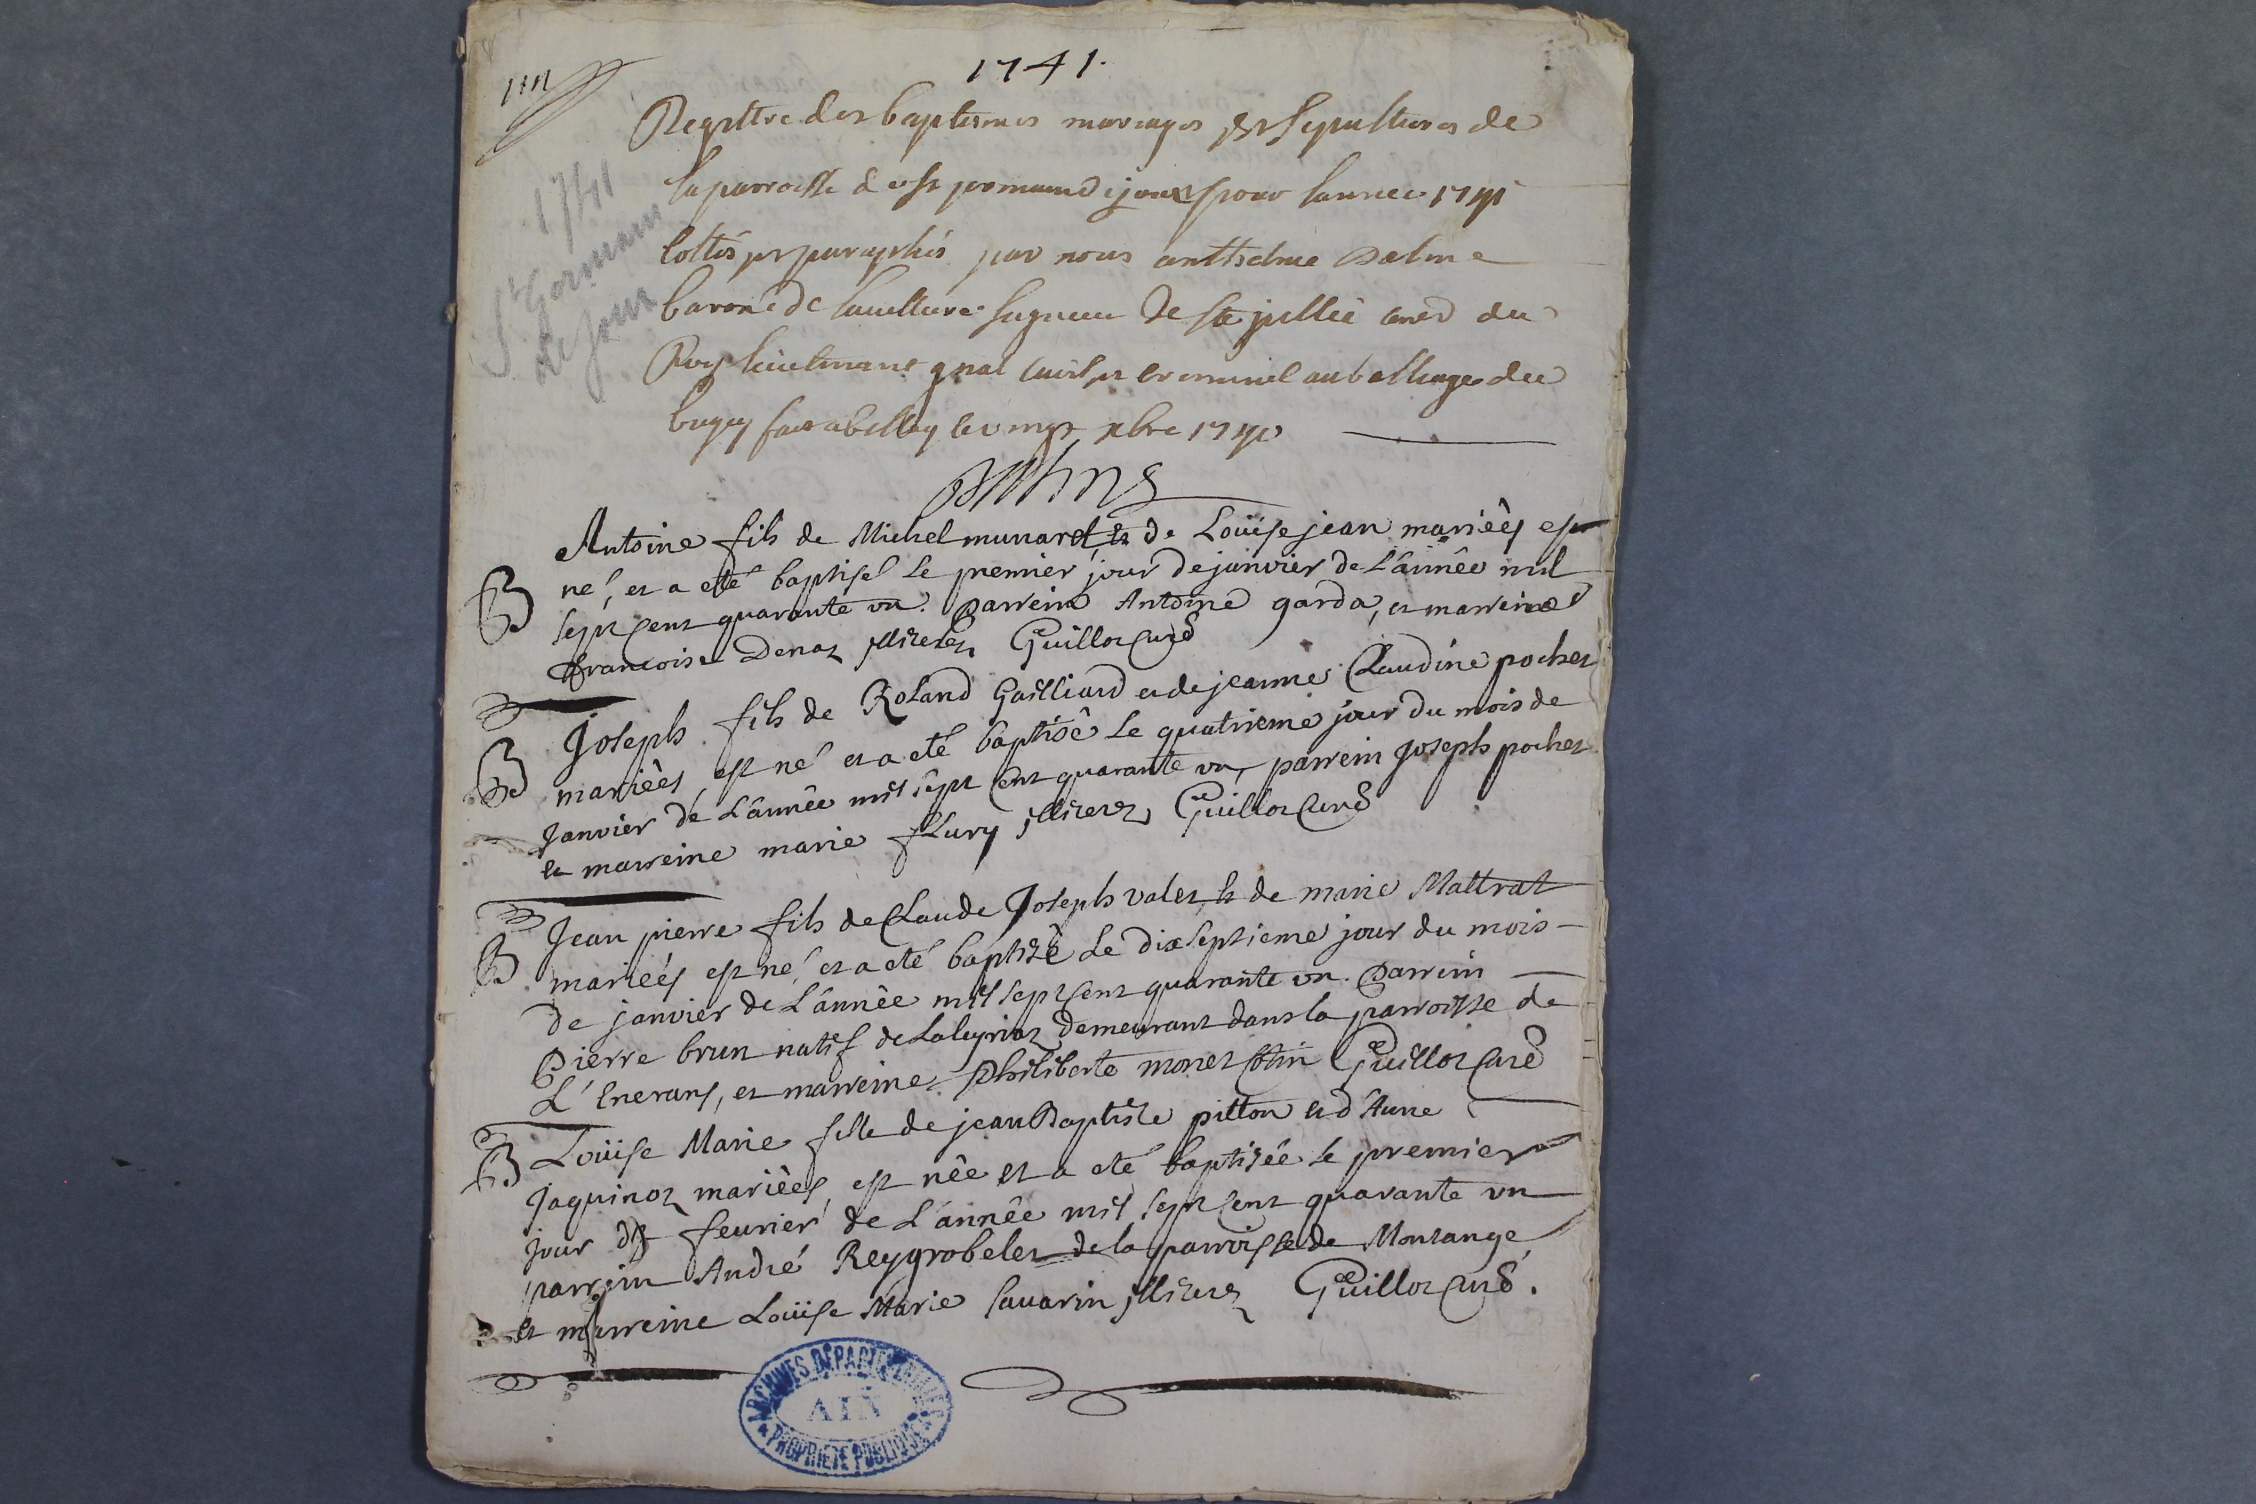 1741.
1741
St Germain
de Joux
Registre des baptesmes mariages et sepultures de
la parroisse de st germain dijoux pour lannee 1741
cottés et paraphés par nous anthelme
baron de seigneur de ste jullie conér du
Roy lieutenant gnal civil et criminel au balliage du
bugey fait a belley le vingt xbre 1740
Antoine fils de Michel munaret, et de Loüise jean mariéés est
B né, et a eté baptisé le premier jour de janvier de L'année mil
sept cent quarante un. Parrein Antoine garda, et marreine
francoise Denaz illiterez Guillot curé
Joseph fils de Roland Gailliard et de jeanne Claudine pochet
B mariéés, est né et a eté baptisé le quatrieme jour du mois de
Janvier de L'année mil sept cent quarante un, parrein Joseph pochet
et marreine marie flury illiterez Guillot curé
Jean pierre fils de Claude Joseph valet, et de marie Mattrat
B mariéés est né, et a eté baptizé Le dixseptieme jour du mois
de janvier de L'année mil sept cent quarante un. Parrein
Pierre brun natif de Laleyriaz demeurant dans la parroisse de
L'Enerans, et marreine Philiberte monet Guillot curé
B Loüise Marie fille de jean Baptiste pitton et d'Anne
Jaquinoz mariéés, est née et a eté baptizée le premier
jour de feurier de L'année mil sept cent quarante un
parrein André Reygrobelet de la parroisse de Montange
et marreine Loüise Marie Sauarin illiterez Guillot curé.
ARCHIVES DÉPARTEMENTALES
AIN
PROPRIÉTÉ PUBLIQUE